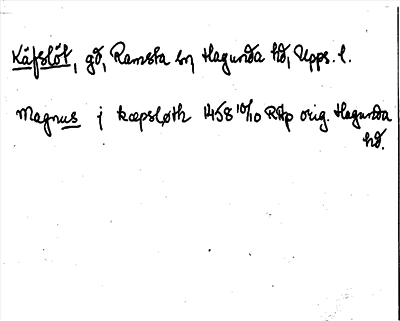 Käfslöt, gd, Ramsta sn, Hagunda hd, Upps. l.
Magnus j kæpsløth 1458 10/10 RAp orig. Hagunda
hd.